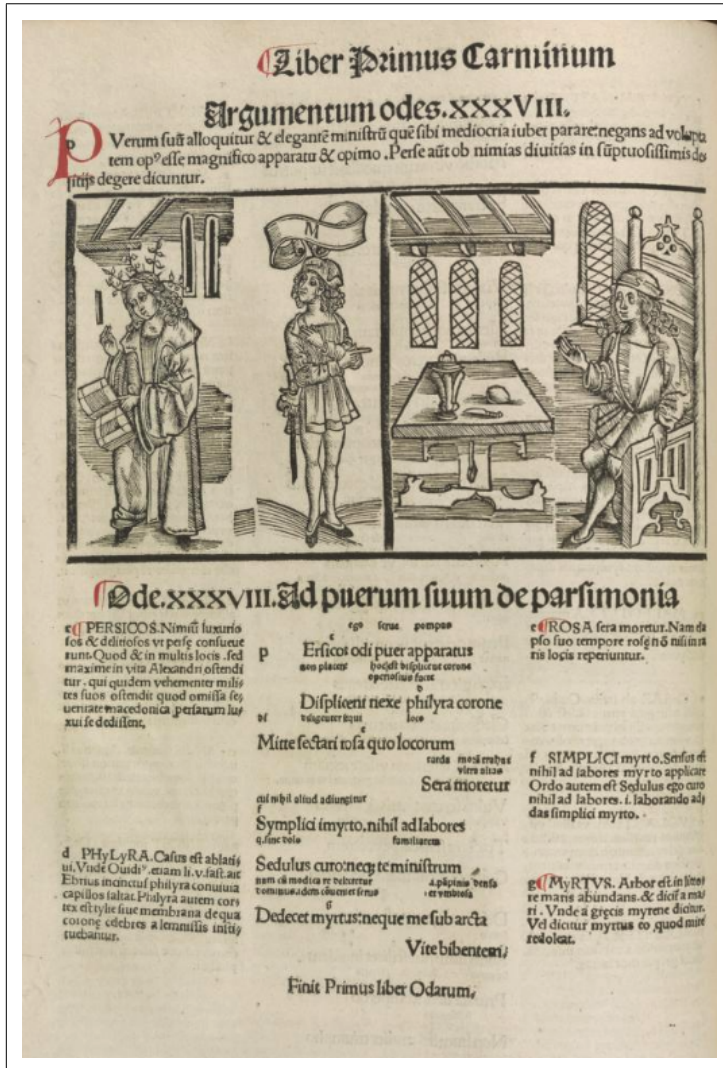 Liber Primus Carminum
Argumentum odes.XXXVIII.
P Verum suū alloquitur & elegantē ministrū quē sibi mediocria iubet parare:negans ad volupta
tem opꝰ esse magnifico apparatu & opimo.Perse aūt ob nimias diuitias in sūptuosissimis de
litijs degere dicuntur.
M
Ode.XXXVIII.Ad puerum suum de parsimonia
c PERSICOS.Nimiū luxurio
sos & delitiosos vt perse consueue
runt.Quod & in multis locis.sed
maxime in vita Alexandri ostendi
tur.qui quidem vehementer mili
tes suos ostendit quod omissa se
ueritate macedonica persarum lu
xui se dedissent.
d PHyLyRA.Casus est ablati
ui.Vnde Ouidiꝰ.etiam li.v.fast.ait
Ebrius incinctus philyra conuiuia
capillos saltat.Philyra autem cor
tex est tylie siue membrana de qua
corone celebres a lemnissis
tuebantur.
ego pompas
c
p Ersicos odi puer apparatus
non placent hoc est displicent corone
operosius facte
d
Displicent nexe philyra corone
diligenter loco
e
Mitte sectari rosa quo locorum
tarda
Sera moretur
cui nihil aliud adiungitur
f
Symplici imyrto.nihil ad labores
familiarem
Sedulus curo:neqꝫ te ministrum
g
Dedecet myrtus:neque me sub arcta
Vite bibentem/
Finit Primus liber Odarum/
e ROSA sera moretur.Nam ela
pso suo tempore rose nō nisi in ra
ris locis reperiuntur.
f SIMPLICI myrto.Sensus est
nihil ad labores myrto applicare
Ordo autem est Sedulus ego curo
nihil ad labores.i.laborando ad
das simplici myrto.
g MyRTVS. Arbor est in litto
re maris abundans.& dicit̄ a ma
ri.Vnde a grecis myrene dicitur.
Vel dicitur myrtus eo quod mire
redoleat.